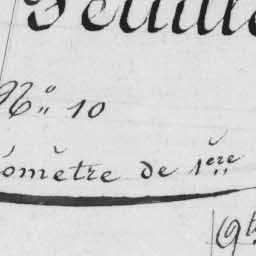 Feuille
Nº 10
omètre de 1ère